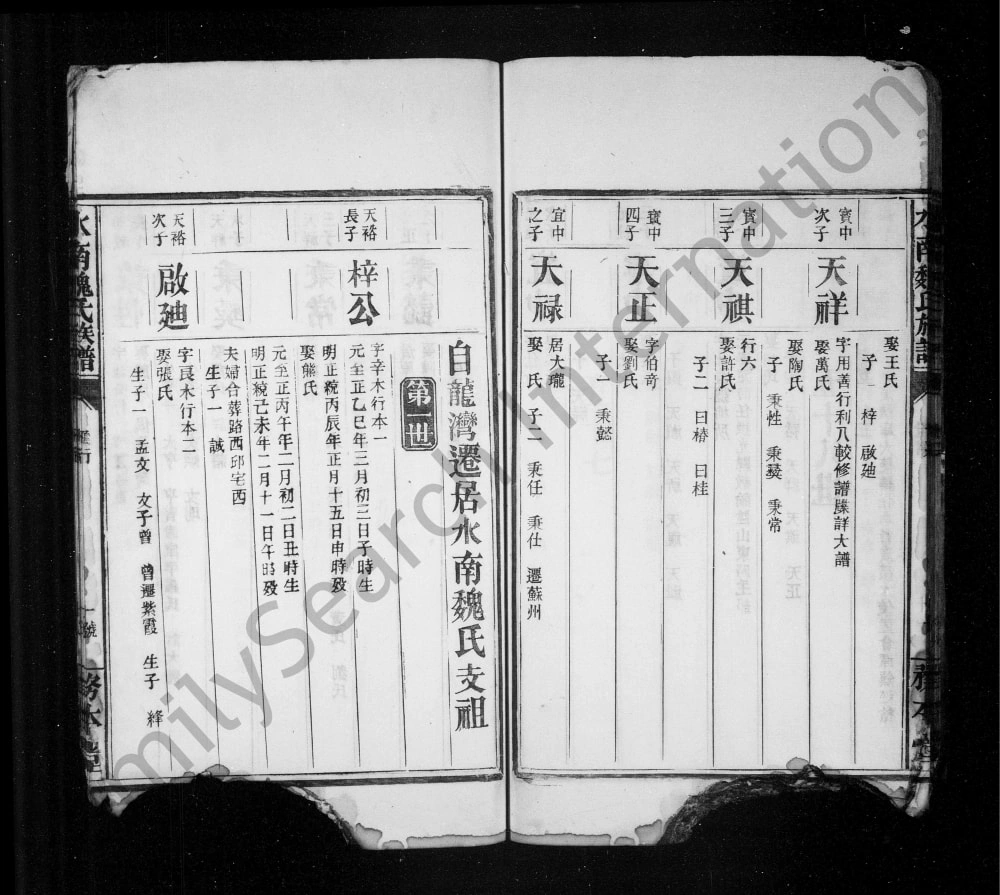 娶王氏
子 梓 啟廸
寶中
次子
天祥
字用善行利八較修譜牒詳大譜
娶萬氏
娶陶氏
子 秉性 秉䕫 秉常
寶中
三子
天祺
行六
娶許氏
子二 曰椿 曰桂
寶中
四子
天正
字伯奇
娶劉氏
子一 秉懿
宜中
之子
大禄
居大瓏
娶 氏 子二 秉任 秉仕 遷蘇州
自龍灣遷居水南魏氏支祖
第一世
天裕
長子
梓公
字辛木行本一
元至正乙巳年三月初三日子時生
明正統丙辰年正月十五日申時歿
娶熊氏
元至正丙午年二月初二日丑時生
明正統己未年二月十一日午時歿
夫婦合葬路西邱宅西
生子一 誠
天裕
次子
啟廸
字良木行本二
娶張氏
生子一 孟文 文子曾 曾遷紫霞 生子 絳
水南魏氏族譜
一號
務本堂
FamilySearch International